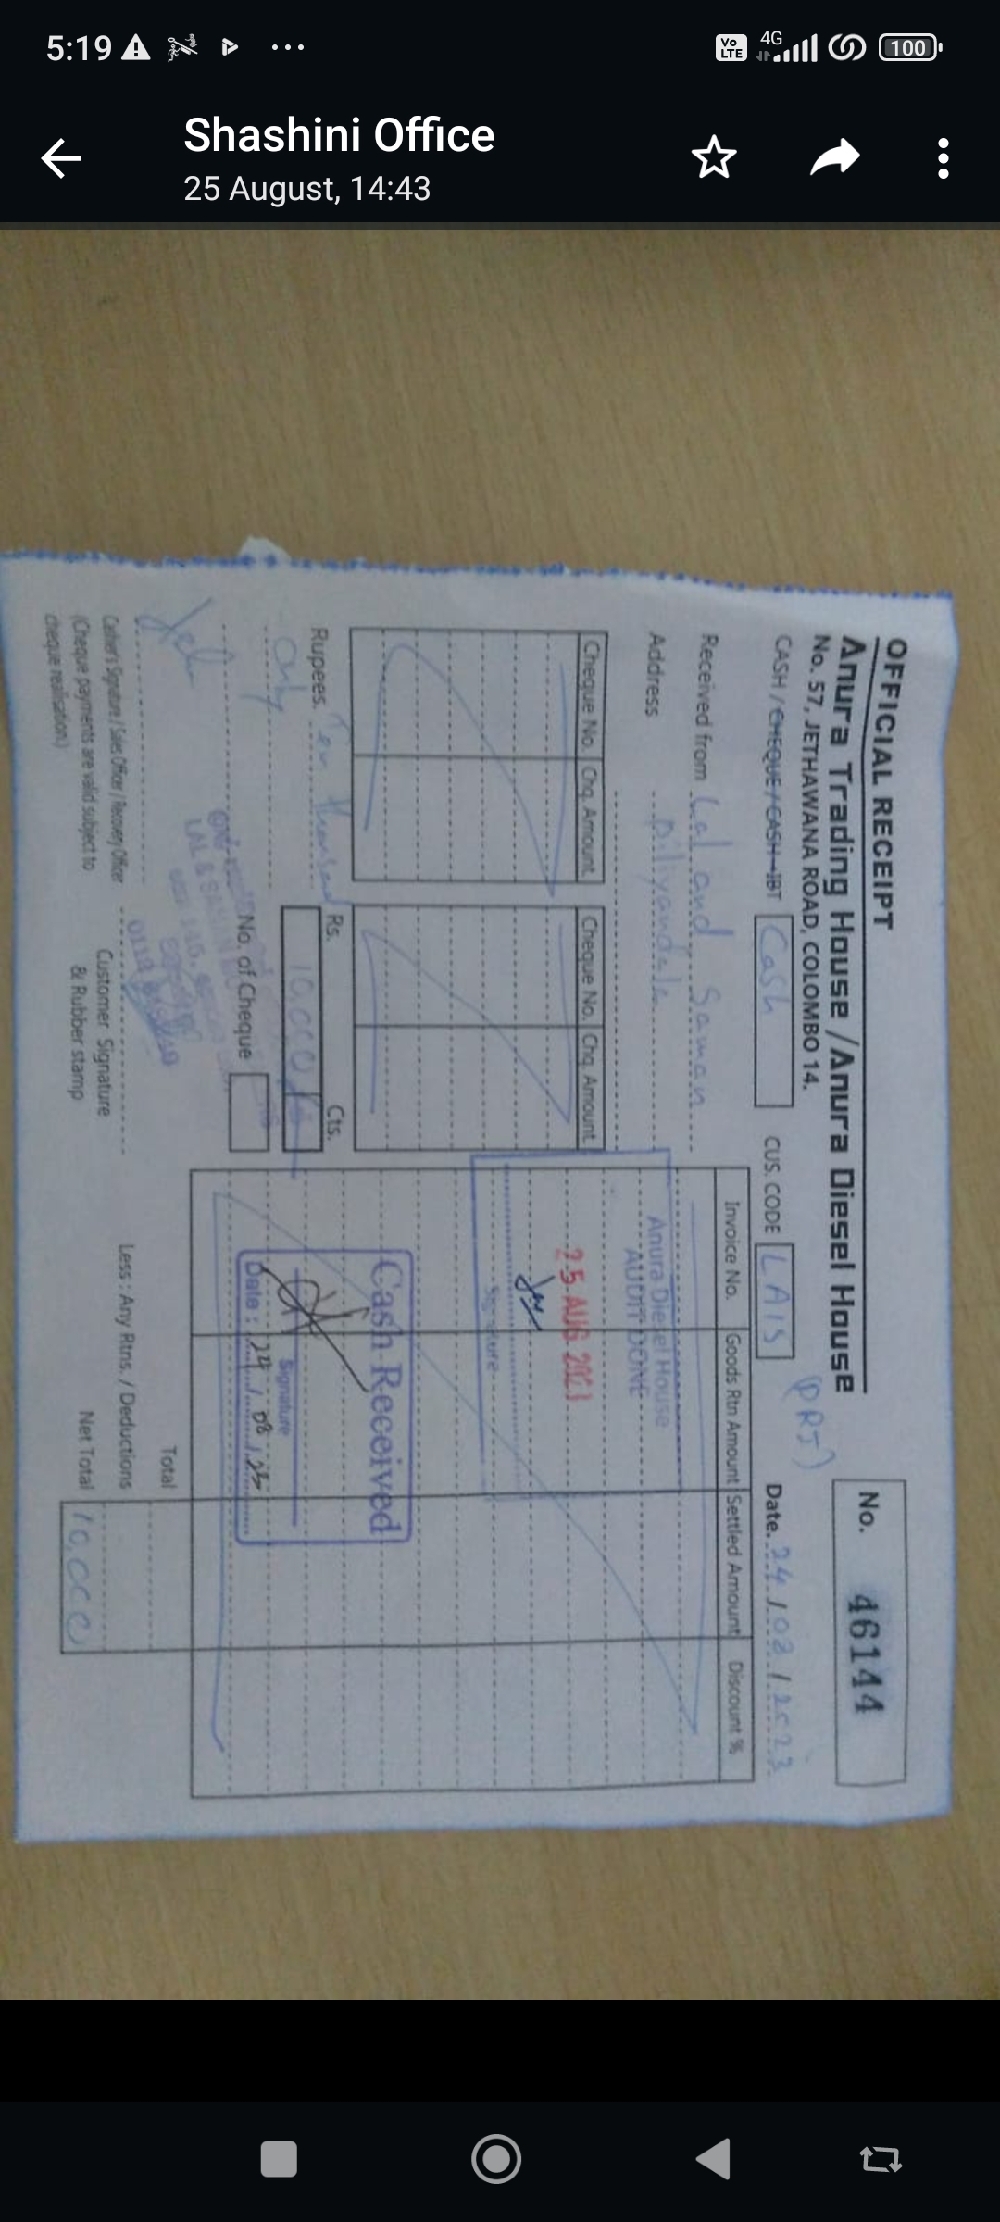 5:19
Vo LTE
4G
100
Shashini Office
25 August, 14:43
OFFICIAL RECEIPT
Anura Trading House / Anura Diesel House
No. 57, JETHAWANA ROAD, COLOMBO 14.
No. 46144
(PRJ)
CASH / CHEQUE / CASH - IBT Cash
CUS. CODE LA15
Date. 24 / 08 / 2023
Received from Lal and Saman
Address Piliyandala
Cheque No. Chq. Amount
Cheque No. Chq. Amount
Invoice No. Goods Rtn Amount Settled Amount Discount %
Anura Diesel House
AUDIT DONE
25 AUG 2023
Signature
Cash Received
Signature
Date : 24 / 08 / 23
Rupees. Ten thousand
only
Rs. Cts.
10,000/=
No. of Cheque
Total
Less : Any Rtns. / Deductions
Net Total 10,000
Cashier's Signature / Sales Officer / Recovery Officer
(Cheque payments are valid subject to
cheque realisation)
Customer Signature
& Rubber stamp